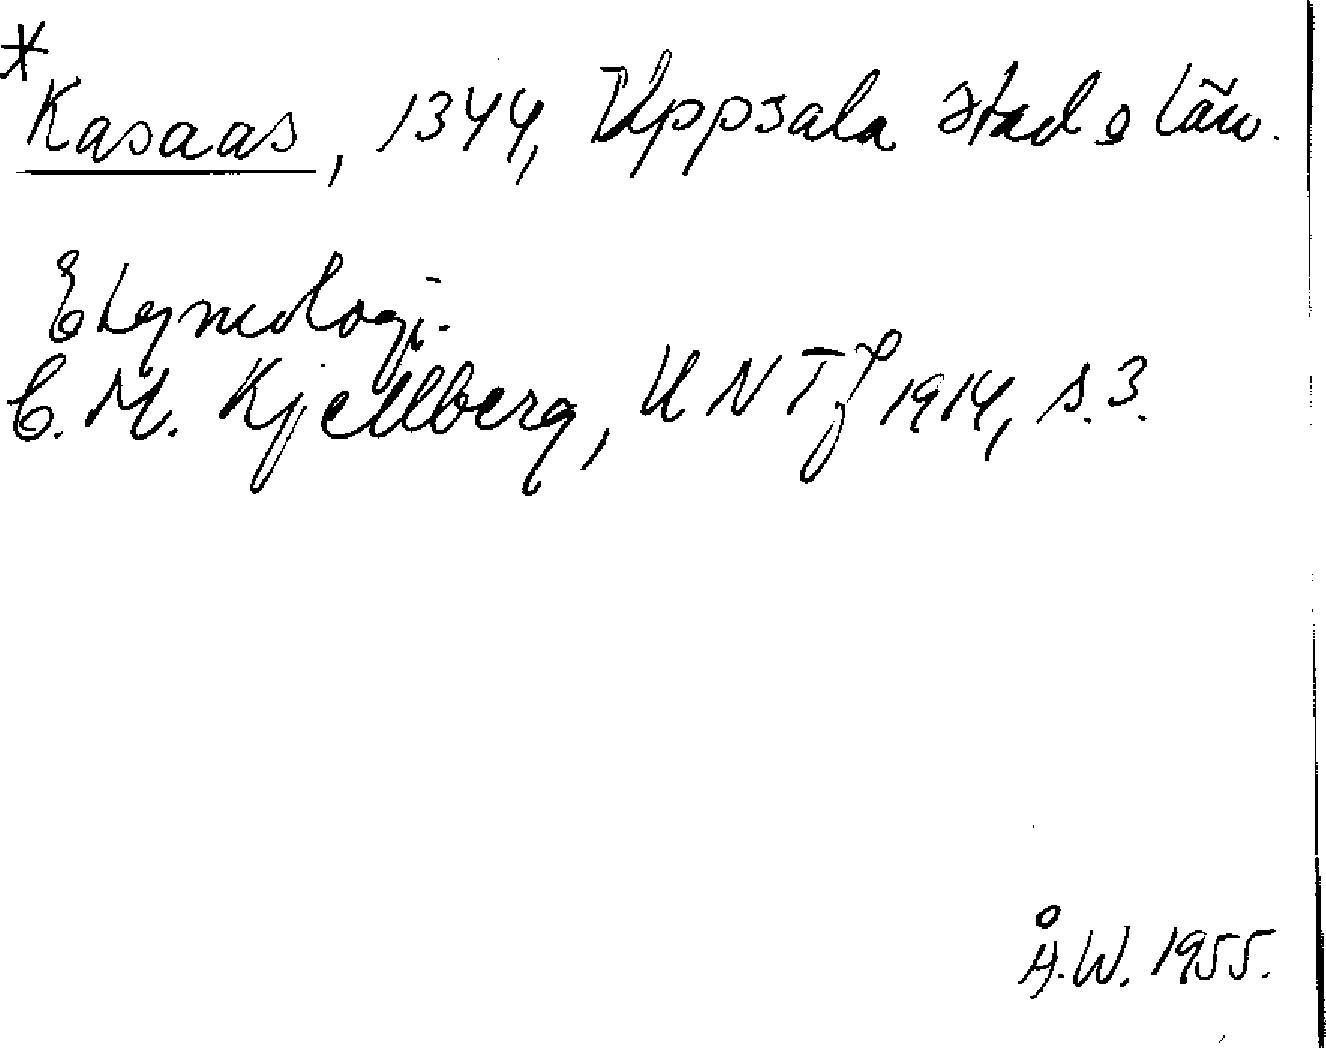 * Kasaas, 1344, Uppsala stad o län.
Etymologi.
C. M. Kjellberg, UNT J 1914, s. 3.
Å.W. 1955.